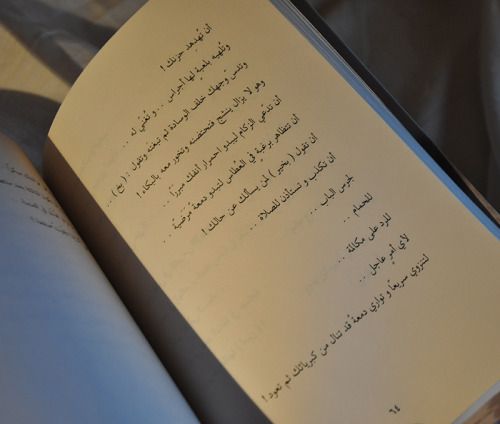 أن تُهدهد حزنك !
وتُلهيه بلعبةٍ لها أجراس .. وتُغنّي له ..
وتدس وجهك خلف الوسادة ثم تبغته وتقول : ( بخ ) ..
وهو لا يزال ينشج فتحتضنه وتخور معه بالبكاء !
أن تدّعي الزكام ليبدو احمرار أنفك مبررًا ..
أن تتظاهر برغبة في العُطاس لتبدو دمعة مَرَضيةً ..
أن تقول ( بخير ) لمن يسألك عن حالك !
أن تكذب و تستأذن للصلاة ..
لجرس الباب ..
للحمام ..
للرد على مكالمة ..
لأي أمرٍ عاجل ..
لتنزوي سريعًا و تواري دمعةً قد تنال من كبريائك لم تعود !
٦٤